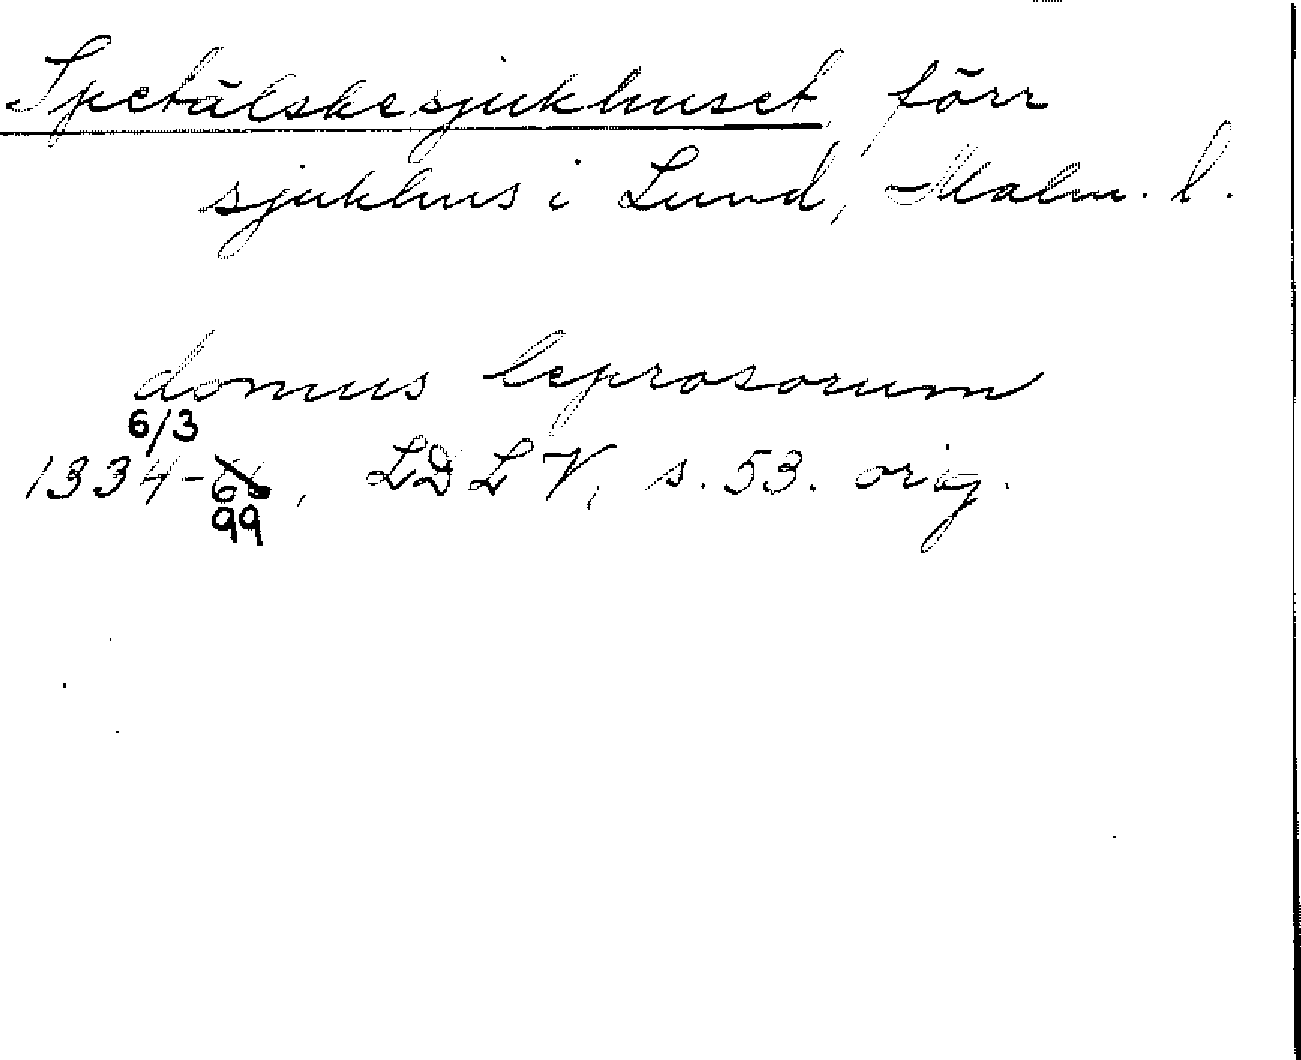 Spetälskesjukhuset, förr
sjukhus i Lund, Malm. l.
domus leprosorum
6/3
1334-66, LDLV, s. 53. orig.
99